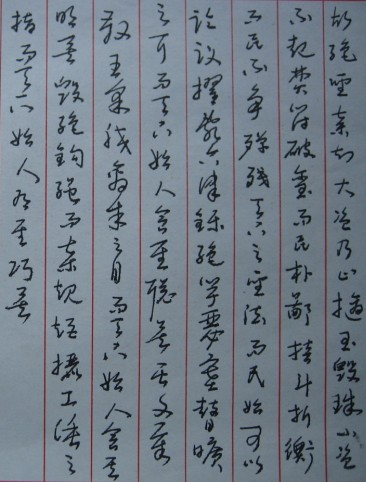 故絕聖棄知大盜乃止擿玉毀珠小盜
不起焚符破璽而民朴鄙掊斗折衡
而民不爭殫殘天下之聖法而民始可以
論議擢亂六律鑠絕竽瑟塞瞽曠
之耳而天下始人含其聰矣滅文章
散五采膠離朱之目而天下始人含其
明矣毀絕鉤繩而棄規矩攦工倕之
指而天下始人有其巧矣